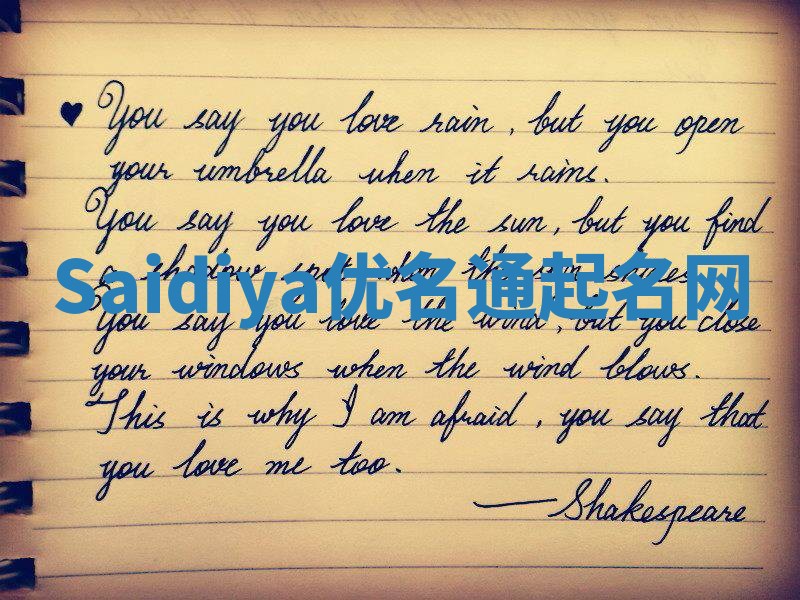 ♥ You say you love rain, but you open
your umbrella when it rains.
You say you love the sun, but you find
a shadow spot when the sun shines
Saidiya优名通起名网
You say you love the wind, but you close
your windows when the wind blows.
This is why I am afraid, you say that
you love me too.
—Shakespeare